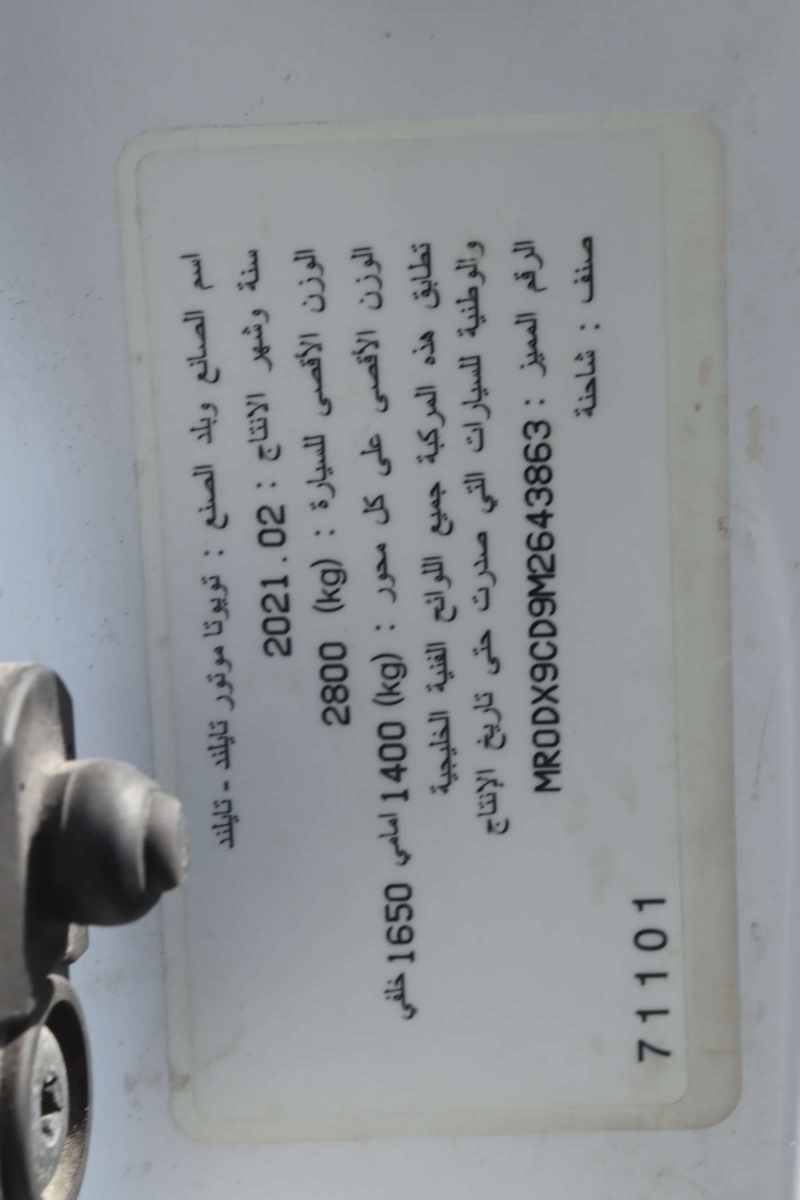 اسم الصانع وبلد الصنع : تويوتا موتور تايلند - تايلند
سنة وشهر الانتاج : 2021.02
الوزن الأقصى للسيارة : (kg) 2800
الوزن الأقصى على كل محور : (kg) 1400 امامي 1650 خلفي
تطابق هذه المركبة جميع اللوائح الفنية الخليجية
والوطنية للسيارات التي صدرت حتى تاريخ الإنتاج
الرقم المميز : MR0DX9CD9M2643863
صنف : شاحنة
71101